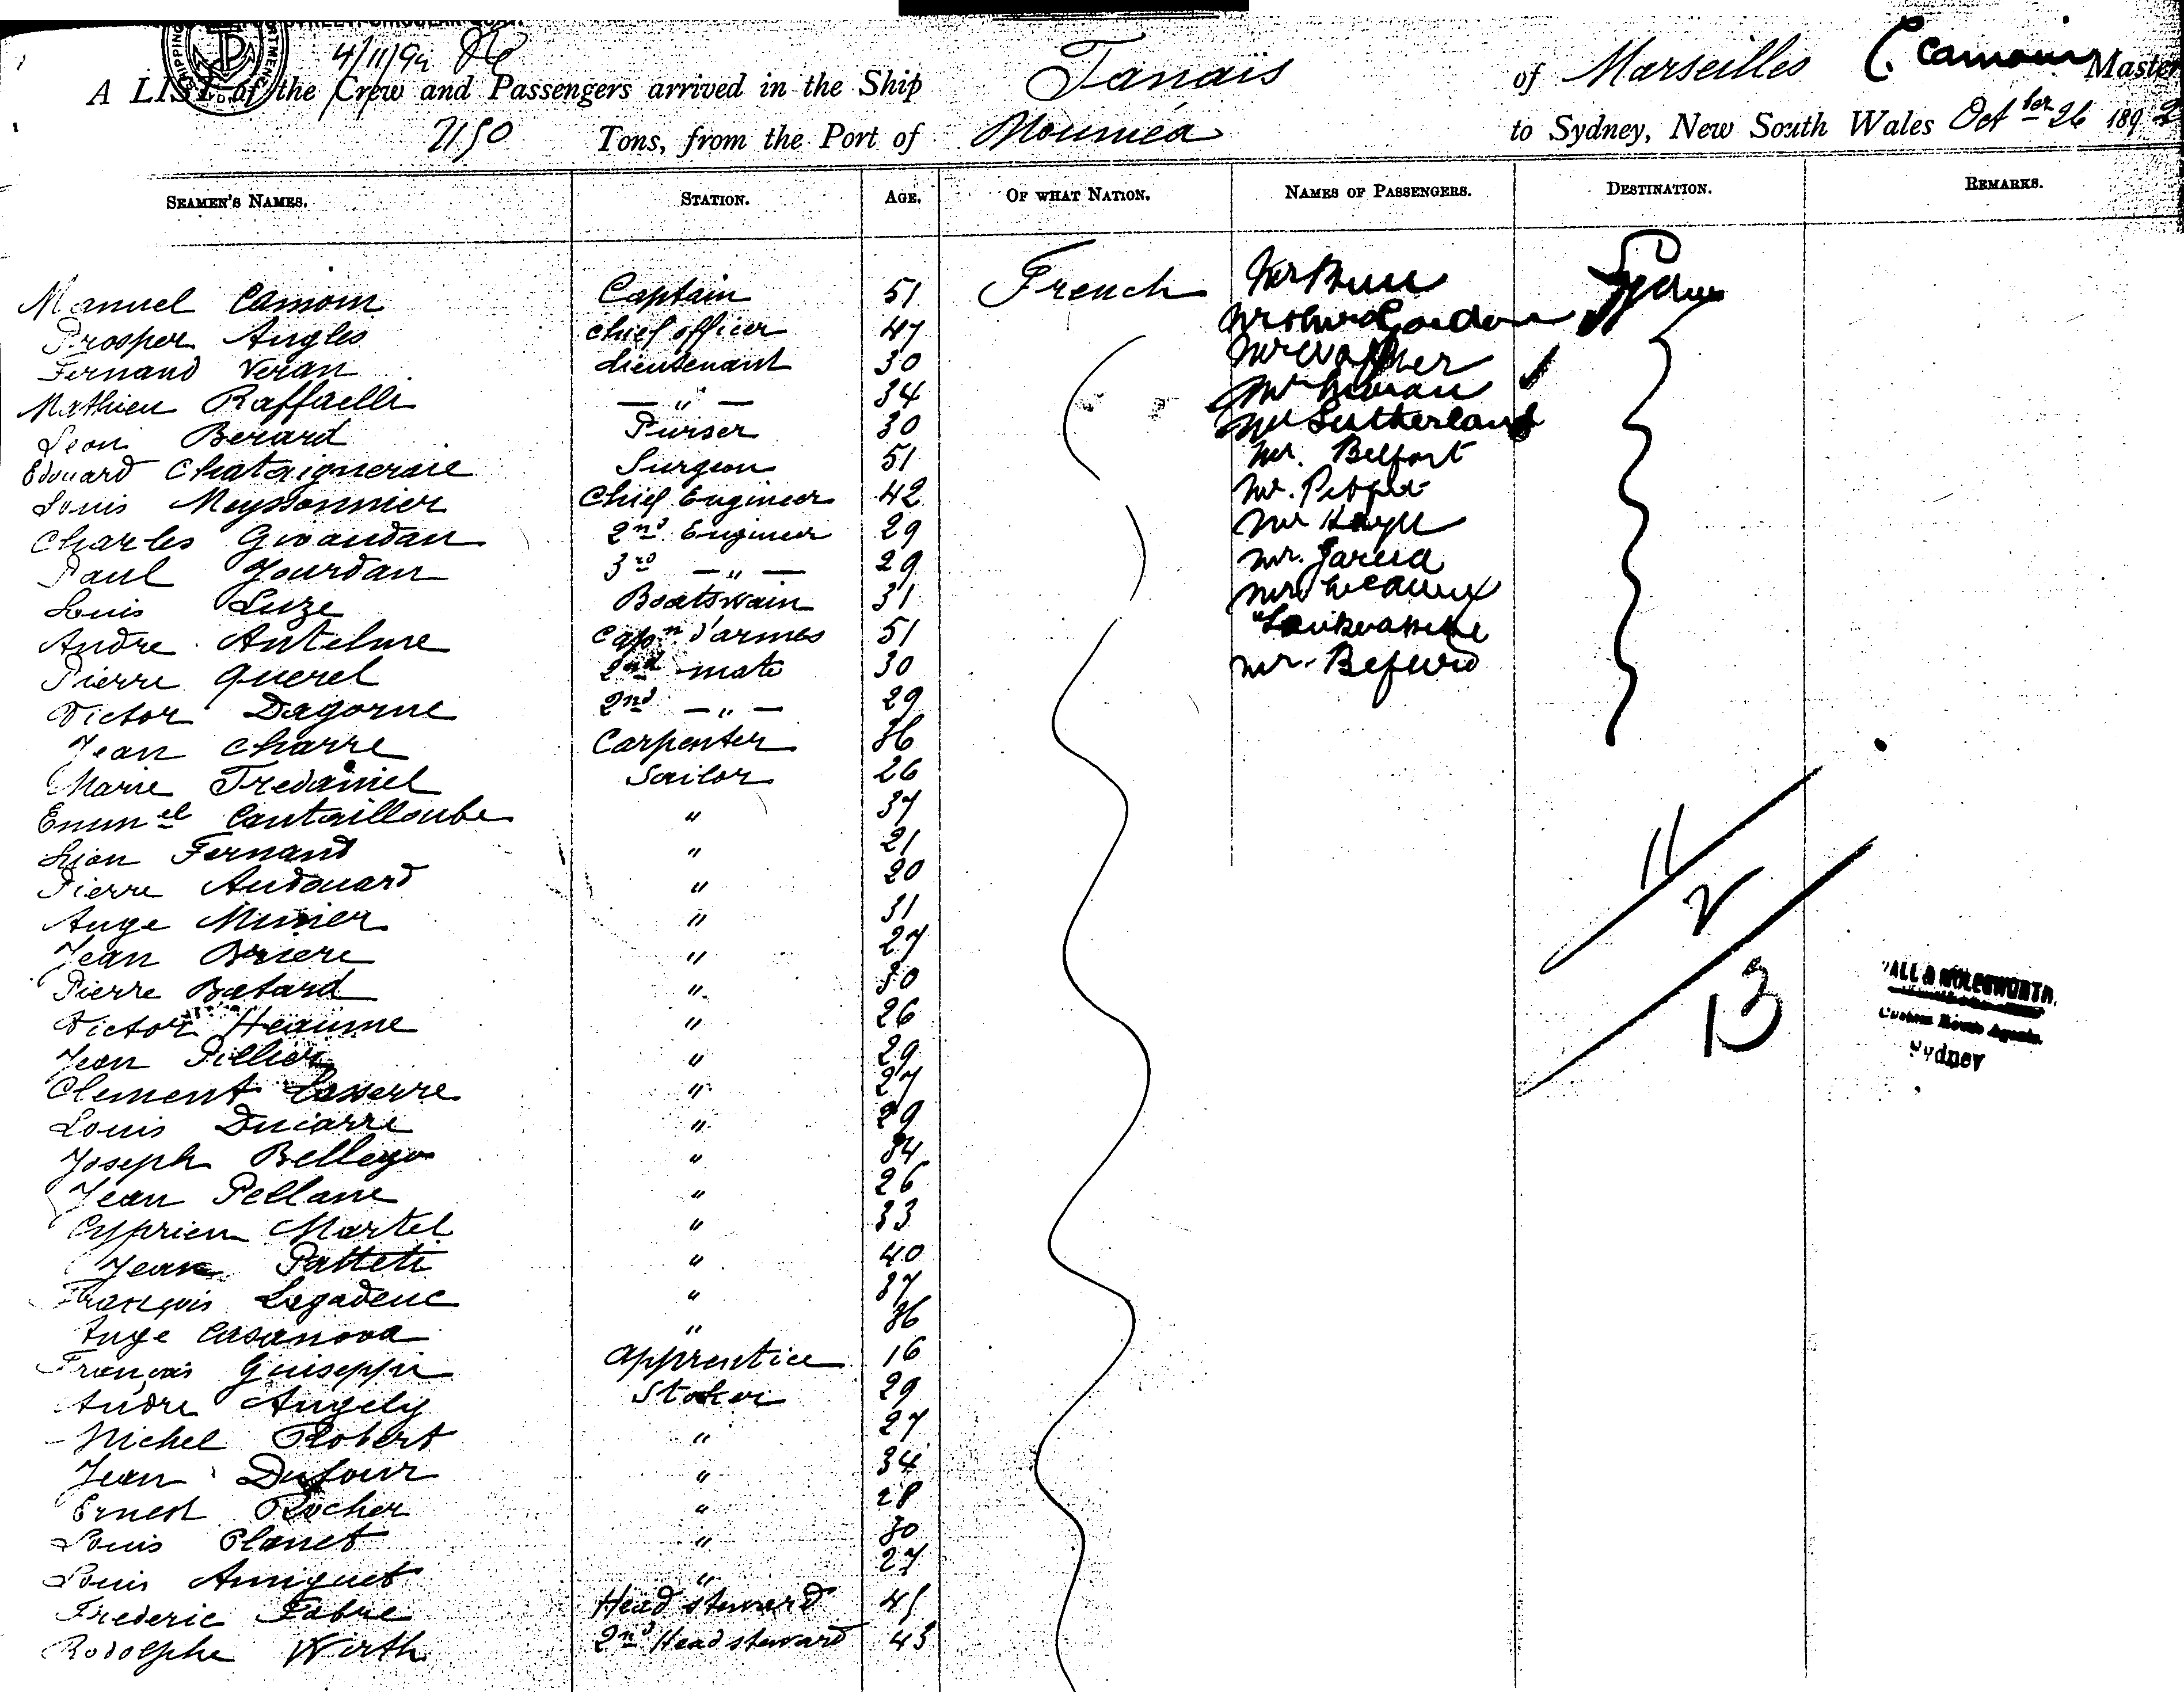 4/11/92
A LIST of the Crew and Passengers arrived in the Ship Tanaïs of Marseilles C. Camoin Master
2150 Tons, from the Port of Nouméa to Sydney, New South Wales Octber 26 1892
SEAMEN'S NAMES. STATION. AGE. OF WHAT NATION. NAMES OF PASSENGERS. DESTINATION. REMARKS.
Manuel Camoin Captain 51 French Sydney
Prosper Angles chief officer 47 Gordon
Fernand Veran Lieutenant 30
Mathieu Raffaelli — " — 34 Mr
Leon Berard Purser 30 Mr Sutherland
Edouard Chataigneraie Surgeon 51 Mr. Belfort
Louis Meyssonnier Chief Engineer 42 Mr.
Charles Givaudan 2nd Engineer 29 Mr
Paul Jourdan 3rd — " — 29 Mr. Garcia
Louis Luze Boatswain 31 Mr
Andre Antelme Capn d'armes 51
Pierre Querel 2nd mate 30 Mr.
Victor Dagorne 2nd — " — 29
Jean Charre Carpenter 36
Marie Tredaniel Sailor 26
Emmel Cantailloube " 37
Lion Fernand " 21
Pierre Audouard " 20
Ange Minier " 31
Jean Briere " 27
Pierre Batard " 30
Victor Heaume " 26
Jean Pillier " 29
Clement Lasserre " 27
Louis Duciarre " 29
Joseph Bellego " 34
Jean Pellane " 26
Cyprien Martel " 33
Jean Patteti " 40
François Lagadeuc " 37
Ange Casanova " 36
François Guiseppi apprentice 16
Andre Angely Stoker 29
Michel Robert " 27
Jean Dufour " 34
Ernest Rocher " 28
Louis Planet " 30
Louis Aunquet " 27
Frederic Fabre Head steward 45
Rodolphe Wirth 2nd Head steward 43
11
2
13
WALL & MOLESWORTH,
Custom House Agents,
Sydney